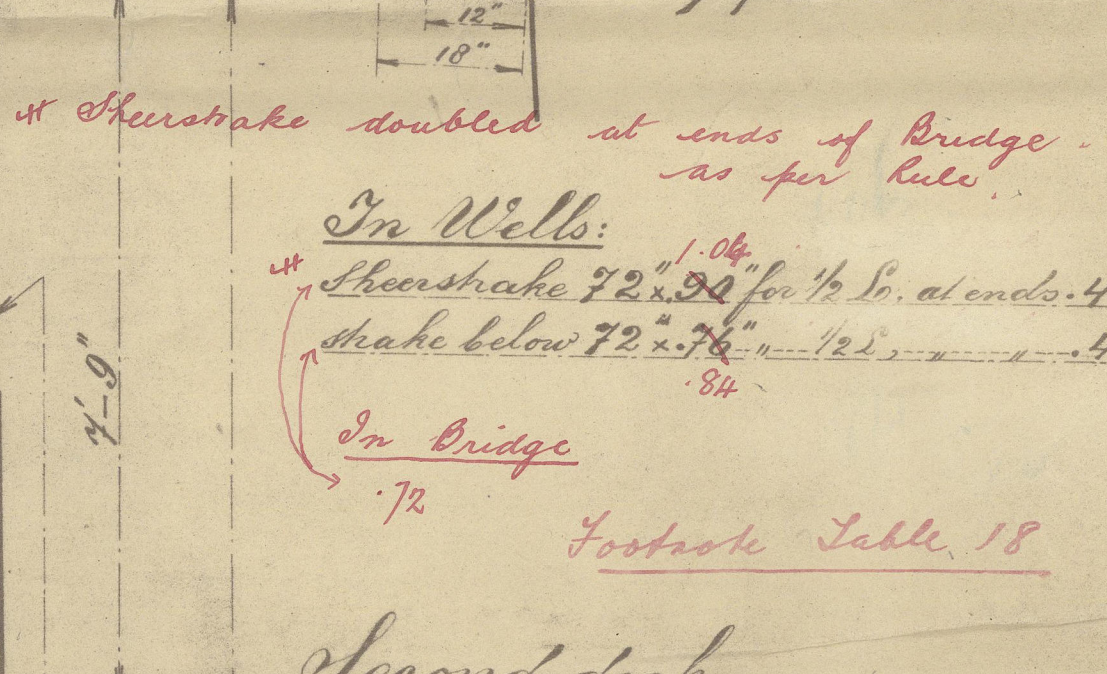 12"
18"
# Sheerstrake doubled at ends of Bridge.
as per Rule.
In Wells:
1.04
# Sheerstrake 72" x .90" for 1/2 L, at ends .4
strake below 72" x .76" " 1/2 L, " " .4
.84
7'-9"
In Bridge
.72
Footnote Table 18
Second deck